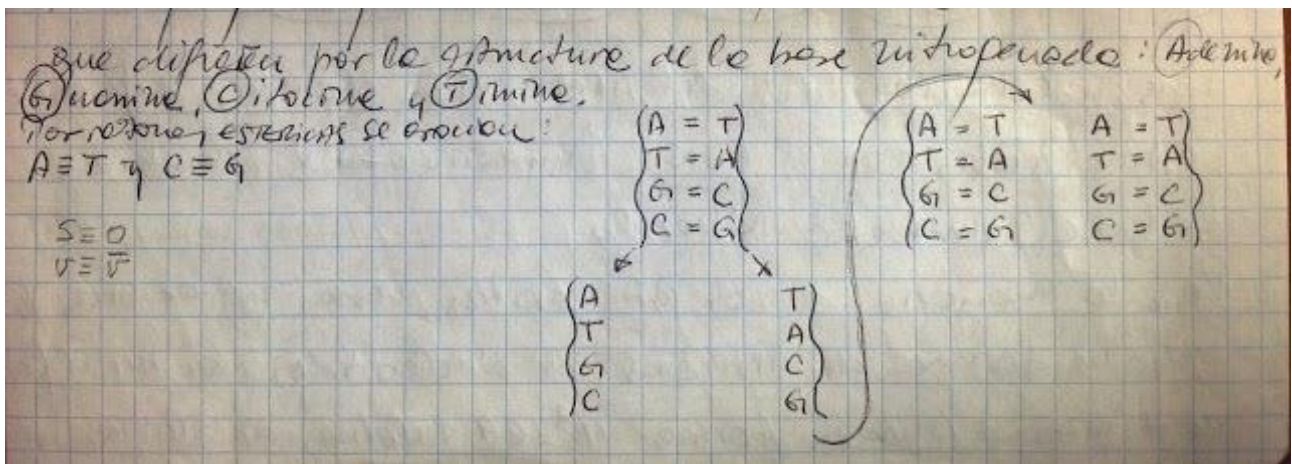 que difieren por la estructura de la base nitrogenada: Adenina,
Guanina, Citosina y Timina.
Por razones estéricas se asocian:
A≡T y C≡G
S≡O
V≡V̅
A = T
T = A
G = C
C = G
A = T A = T
T = A T = A
G = C G = C
C = G C = G
A T
T A
G C
C G